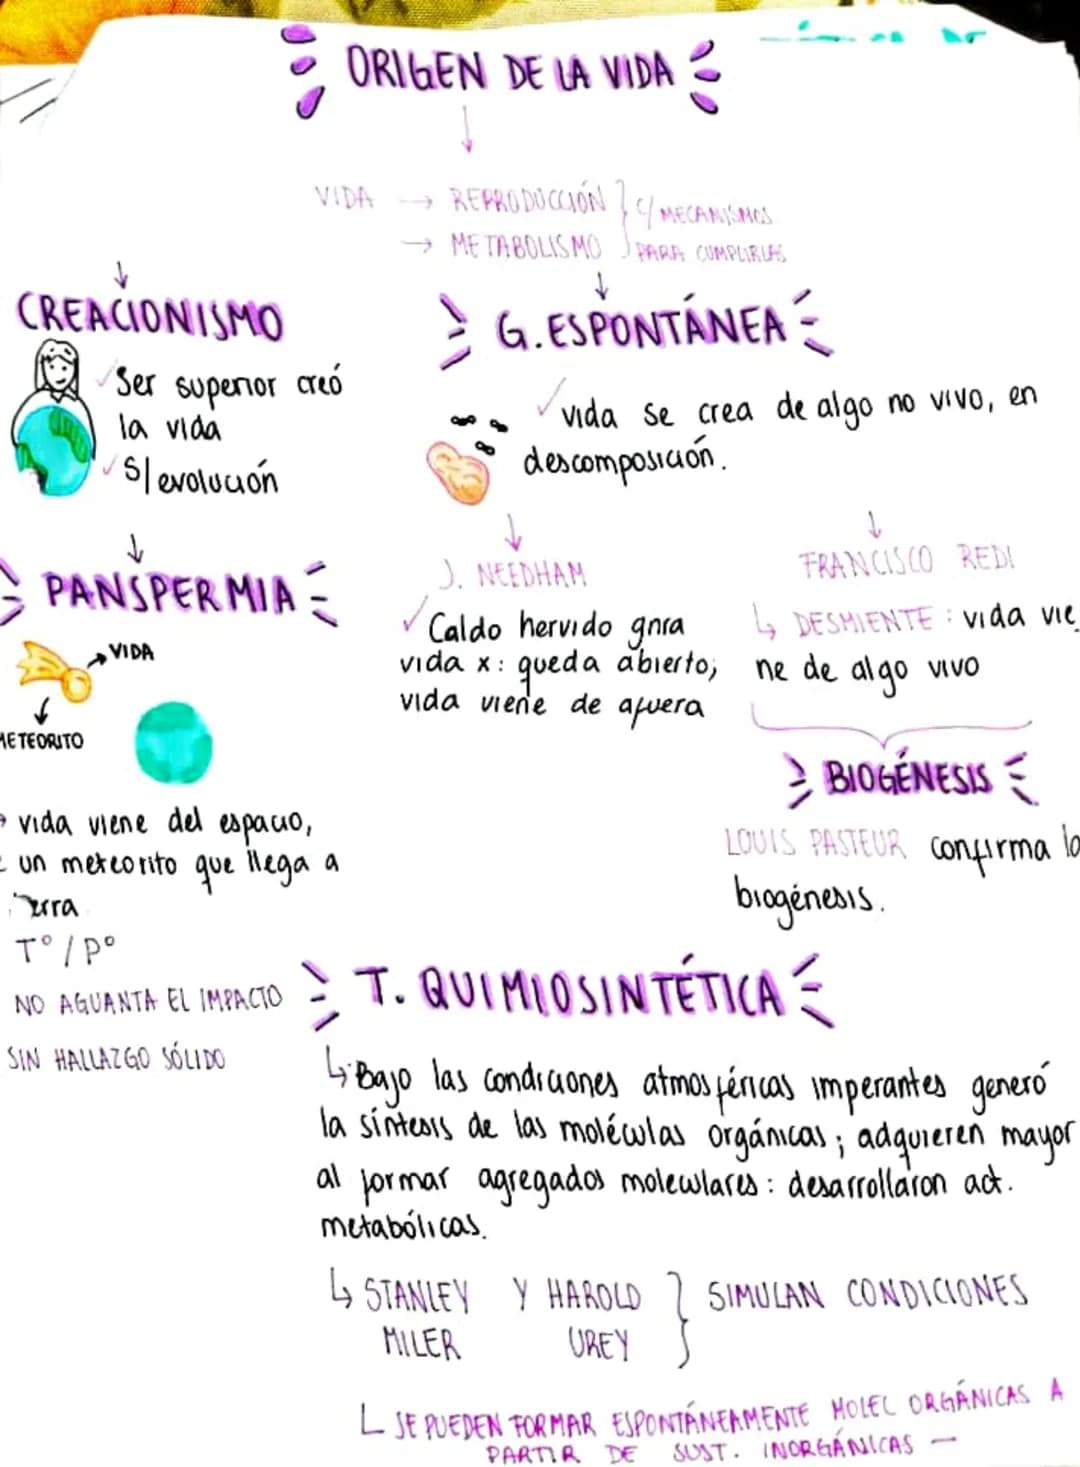 ORIGEN DE LA VIDA
VIDA → REPRODUCCIÓN } C/ MECANISMOS
→ METABOLISMO PARA CUMPLIRLAS
CREACIONISMO
Ser superior creó
la vida
S/evolución
G. ESPONTÁNEA
vida se crea de algo no vivo, en
descomposición.
PANSPERMIA
VIDA
METEORITO
vida viene del espacio,
un meteorito que llega a
T°/P°
NO AGUANTA EL IMPACTO
SIN HALLAZGO SÓLIDO
J. NEEDHAM
Caldo hervido gnra
vida x: queda abierto;
vida viene de afuera
FRANCISCO REDI
↳ DESMIENTE: vida vie
ne de algo vivo
BIOGÉNESIS
LOUIS PASTEUR confirma la
biogénesis.
T. QUIMIOSINTÉTICA
↳ Bajo las condiciones atmosféricas imperantes generó
la síntesis de las moléculas orgánicas; adquieren mayor
al formar agregados moleculares: desarrollaron act.
metabólicas.
↳ STANLEY Y HAROLD } SIMULAN CONDICIONES
MILER UREY
SE PUEDEN FORMAR ESPONTÁNEAMENTE MOLEC ORGÁNICAS A
PARTIR DE SUST. INORGÁNICAS —